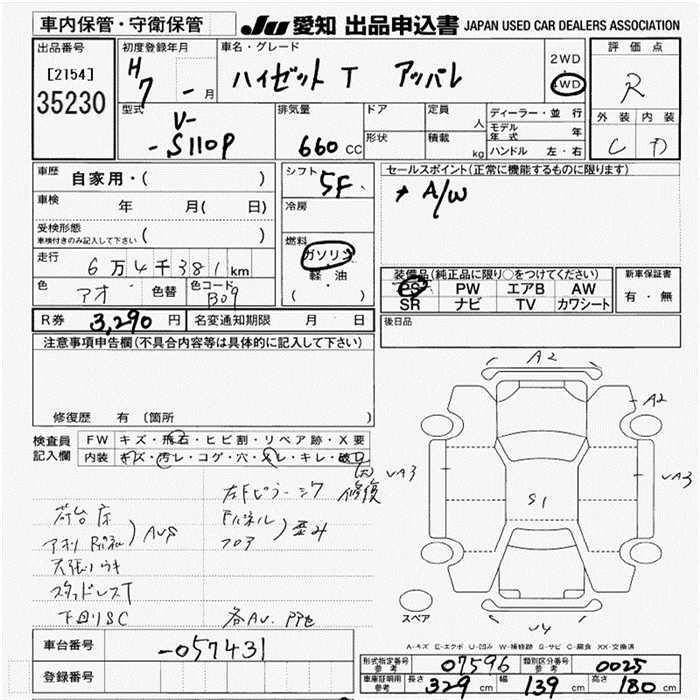 車内保管・守衛保管
JU 愛知 出品申込書 JAPAN USED CAR DEALERS ASSOCIATION
出品番号
[2154]
35230
初度登録年月
H7 - 月
車名・グレード
ハイゼット T アッパレ
2WD
4WD
評価点
R
外装 内装
C D
型式
V-
-S110P
排気量
660 CC
ドア
形状
定員 人
積載 kg
ディーラー・並行
モデル年式 年
ハンドル 左・右
車歴
自家用・( )
車検 年 月( 日)
受検形態
車検付きのみ記入して下さい ( )
走行
6万4千381km
色 アオ 色替 色コード B09
シフト
5F
冷房
燃料
ガソリン
軽・油
( )
セールスポイント(正常に機能するものに限ります)
A/W
装備品(純正品に限り○をつけてください)
PS PW エアB AW
SR ナビ TV カワシート
新車保証書
有・無
R券 3,290円 名変通知期限 月 日
後日品
注意事項申告欄(不具合内容等は具体的に記入して下さい)
修復歴 有 〔箇所
検査員
記入欄
FW キズ・飛石・ヒビ割・リペア跡・X要
内装 キズ・汚レ・コゲ・穴・スレ・キレ・破レ
左Fピラー
修復
Fパネル
フロア
歪み
荷台床
アオリ
スタッドレスT
下回りSC
各AU
A2
A2
UA3
UA3
S1
U4
スペア
A-キズ E-エクボ U-凹み W-補修跡 S-サビ C-腐食 XX-交換済
車台番号
-057431
登録番号
形式指定番号 参考 07596
類別区分番号 参考 0025
車庫証明用 参考 長さ 329 cm 幅 139 cm 高さ 180 cm